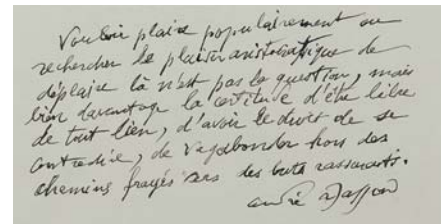 Vouloir plaire populairement ou
rechercher le plaisir aristocratique de
déplaire là n'est pas la question, mais
bien davantage la certitude d'être libre
de tout lien, d'avoir le droit de se
contredire, de vagabonder hors des
chemins frayés vers des buts rassurants.
andré Masson